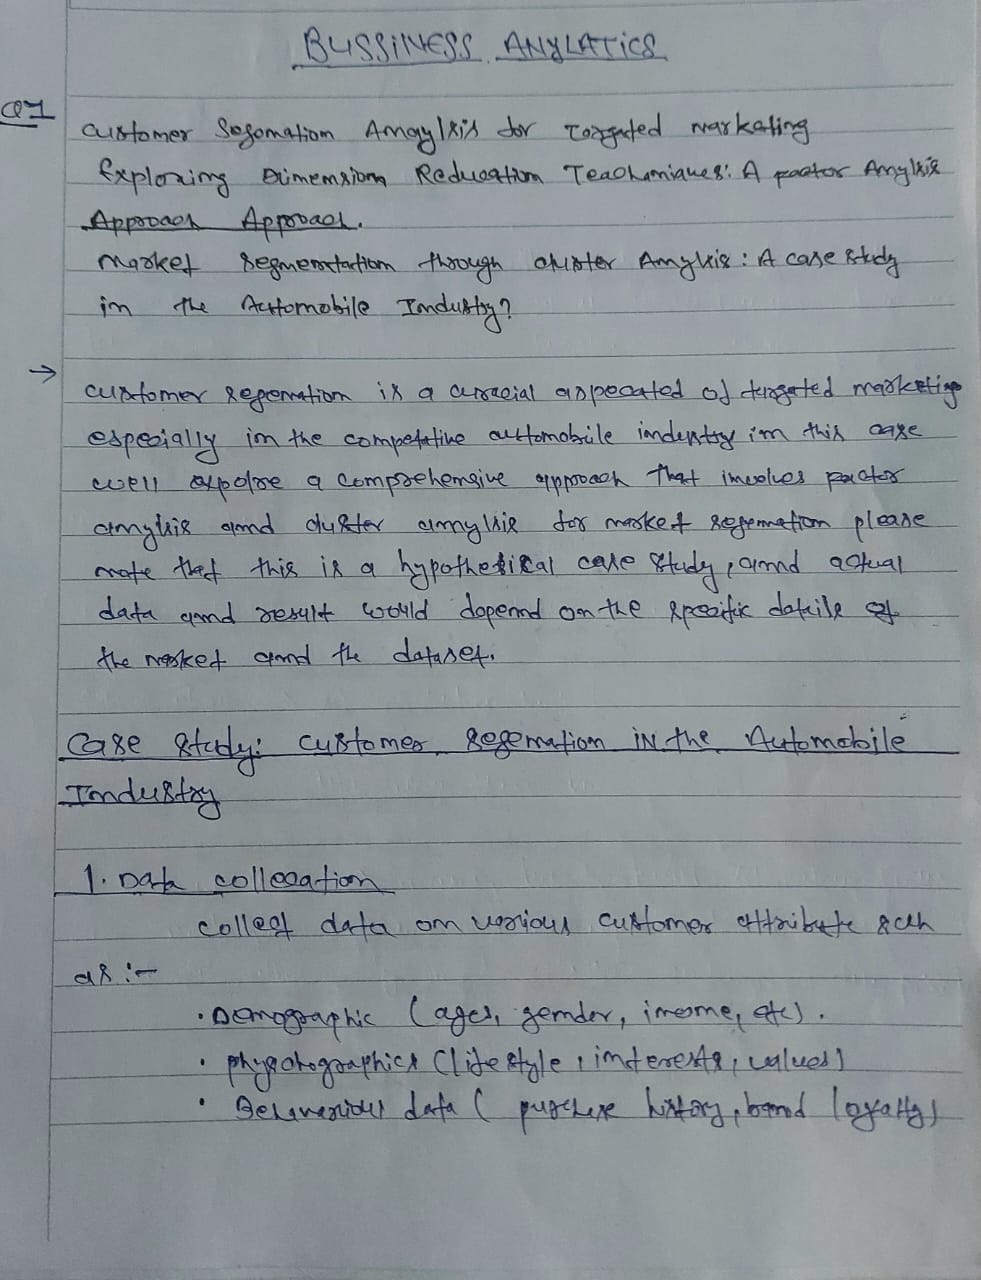 BUSSINESS ANYLATICS
Q1
Customer Segomation Amaylsis for Targated Markating
Exploring Dimemsiom Reducation Teachaniques: A factor Amylsis
Approach Approach.
Market Segmemtation through cluster Amylsis: A case study
in the Auttomobile Industry?
→ customer segemation is a crucial aspecated of targated marketing
especially in the competative auttomobile indenstry im this case
well expolore a comprehemsive approach that imvolves factor
amylsis amd cluster amylsis for market segemation please
mote that this is a hypothetical case study, amnd actual
data amd result would depemd on the specific details of
the market amd the dataset.
Case Study: Customer Segemation in the Automobile
Imdustry
1. Data collecation
collect data om various customer attribute such
as :-
• Demographic (ages, gemder, imcome, etc).
• phychographics (life style, imterests, values)
• Behaverioul data ( purchese history, bramd loyalty)